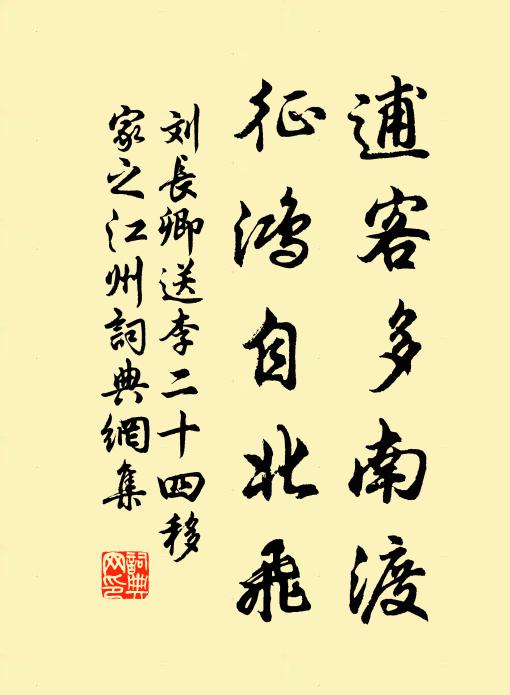 逋客多南渡
征鸿自北飛
刘長卿送李二十四移
家之江州詞典網集
詞典
网印